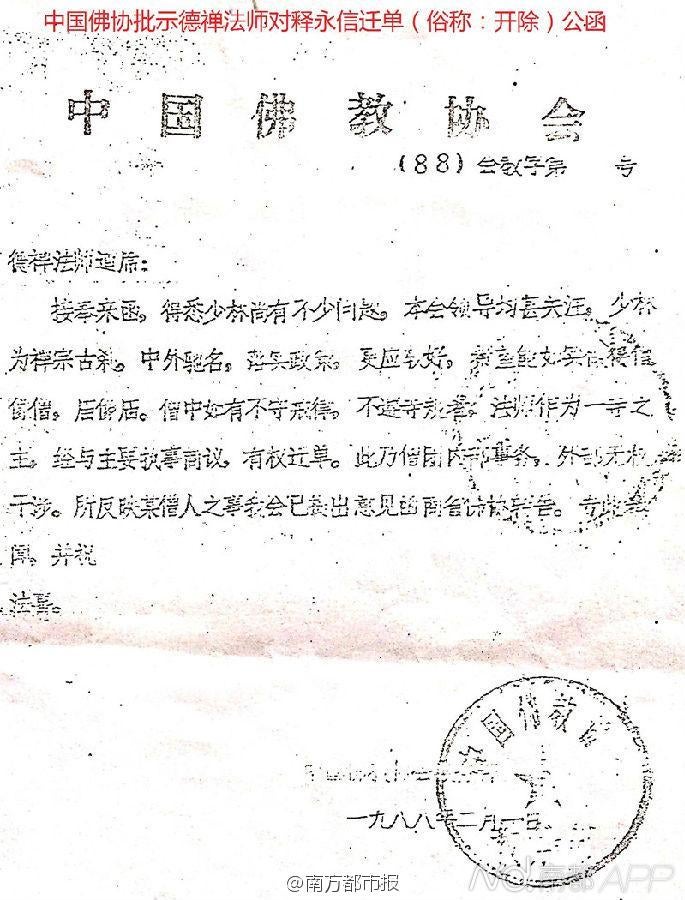 中国佛协批示德禅法师对释永信迁单（俗称：开除）公函
中国佛教协会
（88）会教字第 号
德禅法师道席：
接奉来函，得悉少林尚有不少问题，本会领导均甚关注。少林
为禅宗古刹，中外驰名，落实政策，更应较好，
僧中如有不守戒律，不遵寺规者，法师作为一寺之
主，经与主要执事商议，有权迁单。此乃僧团内部事务，外部无权
干涉。所反映某僧人之事我会已提出意见函商省 专此
并祝
法喜。
中国佛教协会
一九八八年二月一日
@南方都市报
南都APP